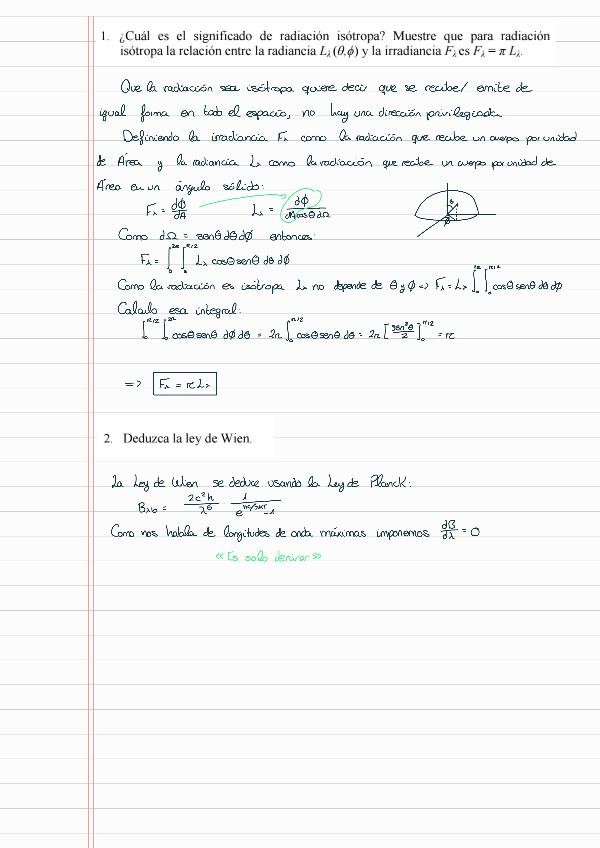 1. ¿Cuál es el significado de radiación isótropa? Muestre que para radiación
isótropa la relación entre la radiancia Lλ (θ,ϕ) y la irradiancia Fλ es Fλ = π Lλ.
Que la radiación sea isótropa quiere decir que se recibe/ emite de
igual forma en todo el espacio, no hay una dirección privilegiada
Definiendo la irradiancia Fλ como la radiación que recibe un cuerpo por unidad
de Área y la radiancia Lλ como la radiación que recibe un cuerpo por unidad de
Área en un ángulo sólido:
Fλ = dϕ/dA Lλ = dϕ/dA cosθ dΩ
Como dΩ = senθ dθ dϕ entonces:
Fλ = ∫₀^2π ∫₀^π/2 Lλ cosθ senθ dθ dϕ
Como la radiación es isótropa Lλ no depende de θ y ϕ => Fλ = Lλ ∫₀^2π ∫₀^π/2 cosθ senθ dθ dϕ
Calculo esa integral:
∫₀^π/2 ∫₀^2π cosθ senθ dϕ dθ = 2π ∫₀^π/2 cosθ senθ dθ = 2π [sen²θ/2]₀^π/2 = π
=> Fλ = π Lλ
2. Deduzca la ley de Wien.
La Ley de Wien se deduce usando la Ley de Planck:
Como nos habla de longitudes de onda máximas imponemos dB/dλ = 0
«Es solo derivar»